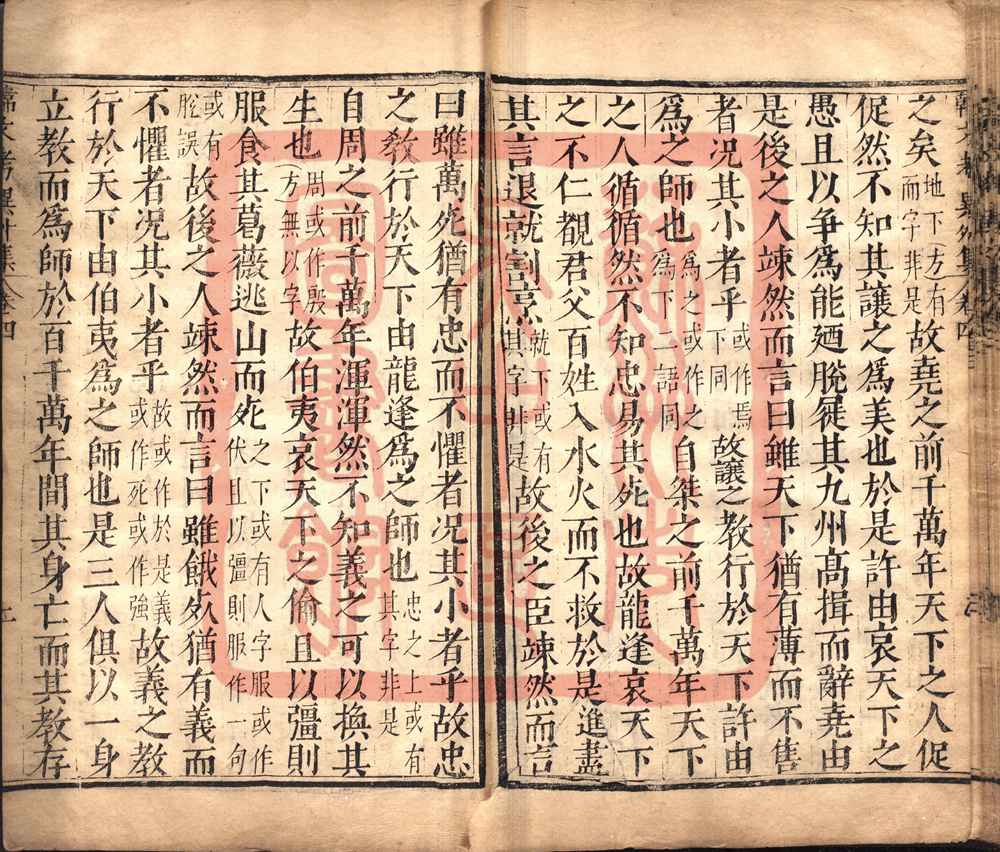 之矣地下(方)有而字非是故堯之前千萬年天下之人促
促然不知其讓之爲美也於是許由哀天下之
愚且以争爲能廼脫屣其九州高揖而辭堯由
是後之人竦然而言曰雖天下猶有薄而不售
者况其小者乎或作焉下同故讓之教行於天下許由
爲之師也爲之或作之爲下二語同自桀之前千萬年天下
之人循循然不知忠易其死也故龍逢哀天下
之不仁覩君父百姓入水火而不救於是進盡
其言退就割烹就下或有其字非是故後之臣竦然而言
曰雖萬死猶有忠而不懼者况其小者乎故忠
之教行於天下由龍逢爲之師也忠之上或有其字非是
自周之前千萬年渾渾然不知義之可以換其
生也周或作殷(方)無以字故伯夷哀天下之偷且以彊則
服食其葛薇逃山而死之下或有人字服或作伏且以彊則服作一句
或有脫誤故後之人竦然而言曰雖餓死猶有義而
不懼者况其小者乎故或作於是義或作死或作強故義之教
行於天下由伯夷爲之師也是三人俱以一身
立教而爲師於百千萬年間其身亡而其教存
卷四